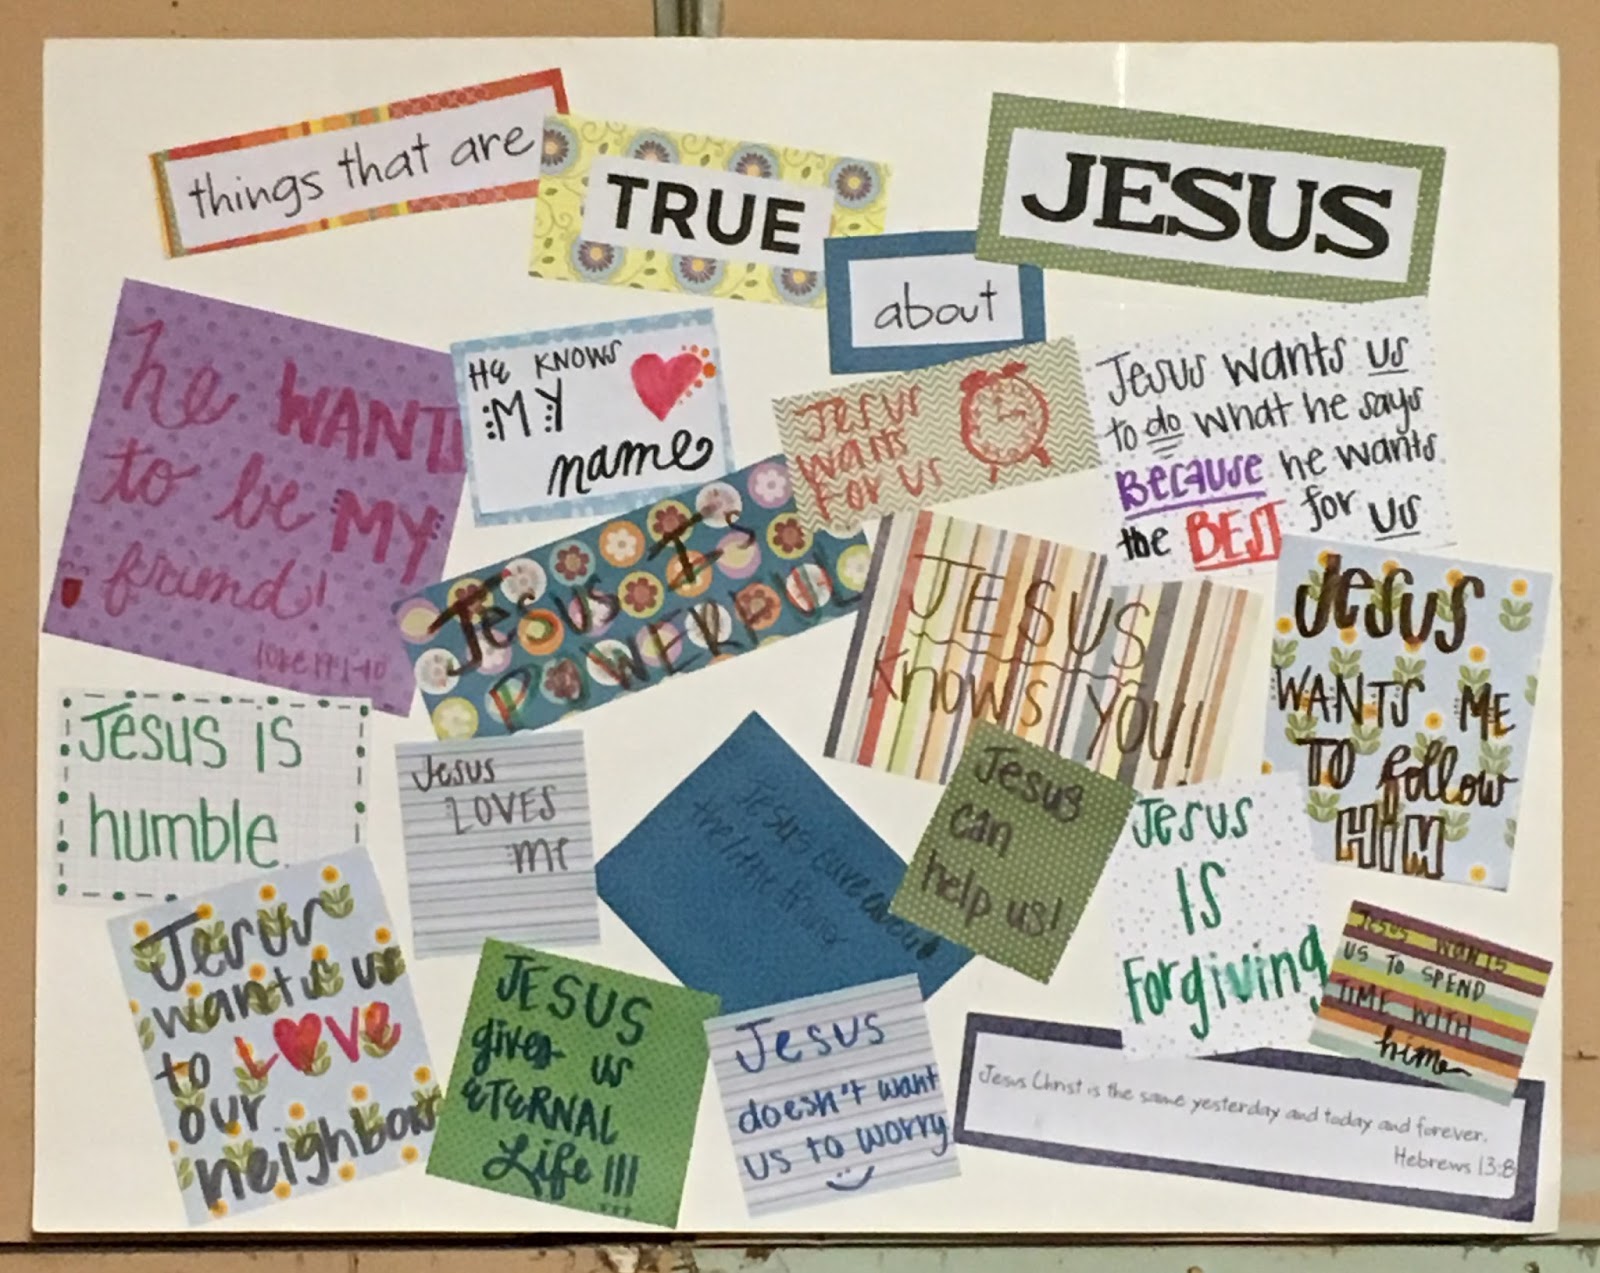 things that are
TRUE
about
JESUS
he WANTS
to be MY
friend!
luke 19:1-10
HE KNOWS
MY
name
Jesus
wants
for us
Jesus wants us
to do what he says
Because he wants
the BEST for us
Jesus Is
POWERFUL
JESUS
Knows YOU!
Jesus
WANTS ME
TO follow
HIM
Jesus is
humble
Jesus
LOVES
me
Jesus cares about
the little things
Jesus
can
help us!
Jesus
IS
Forgiving
JESUS WANTS
US TO SPEND
TIME WITH
him
Jesus
wants us
to LOVE
our
neighbors
JESUS
gives us
ETERNAL
Life!!!
Jesus
doesn't want
us to worry
Jesus Christ is the same yesterday and today and forever.
Hebrews 13:8